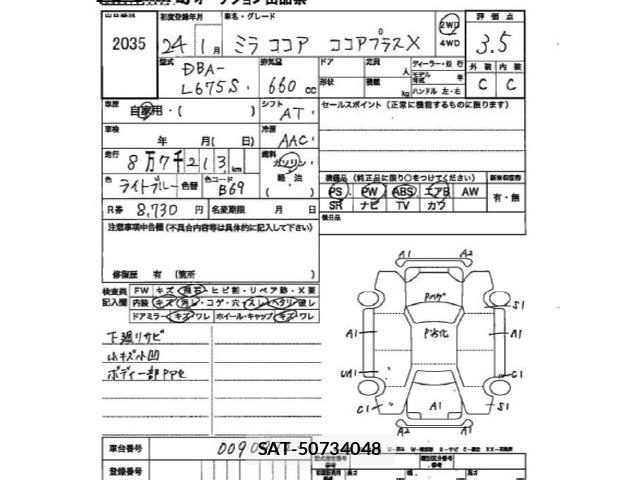 出品番号 初度登録年月 車名・グレード 評価点
2035 24 1月 ミラ ココア ココアプラスX 2WD 4WD 3.5
型式 排気量 ドア 定員 人 ディーラー・並行 外装 内装
DBA-L675S 660 cc 形状 積載 kg モデル年式 年 ハンドル 左・右 C C
車歴 自家用・( ) シフト AT セールスポイント (正常に機能するものに限ります)
車検 年 月( 日) 冷房 AAC
走行 8万7千213km 燃料 ガソリン 軽油 ( )
装備品 (純正品に限り○をつけてください)
色 ライトブルー 色替 色コード B69 PS PW ABS エアB AW 有・無
SR ナビ TV カワ
R券 8,730円 名変期限 月 日 後日品
注意事項申告欄 (不具合内容等は具体的に記入して下さい)
修復歴 有 (箇所 )
検査員記入欄 FW キズ・飛石・ヒビ割・リペア跡・X要
内装 キズ・汚レ・コゲ・穴・スレ・ヘタリ・破レ
ドアミラー キズ・ワレ ホイール・キャップ キズ・ワレ
下廻リサビ
小キズ小凹
ボディー部PPセ
A1 A2
Pハゲ
S1
A1 P劣化 A1
UA1 C1
C1 A1 S1
車台番号 SAT-50734048
登録番号